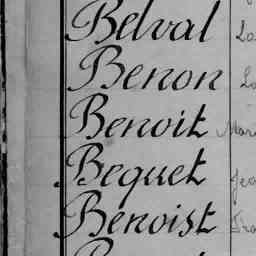 Belval
Benon
Benoit
Bequet
Benoist